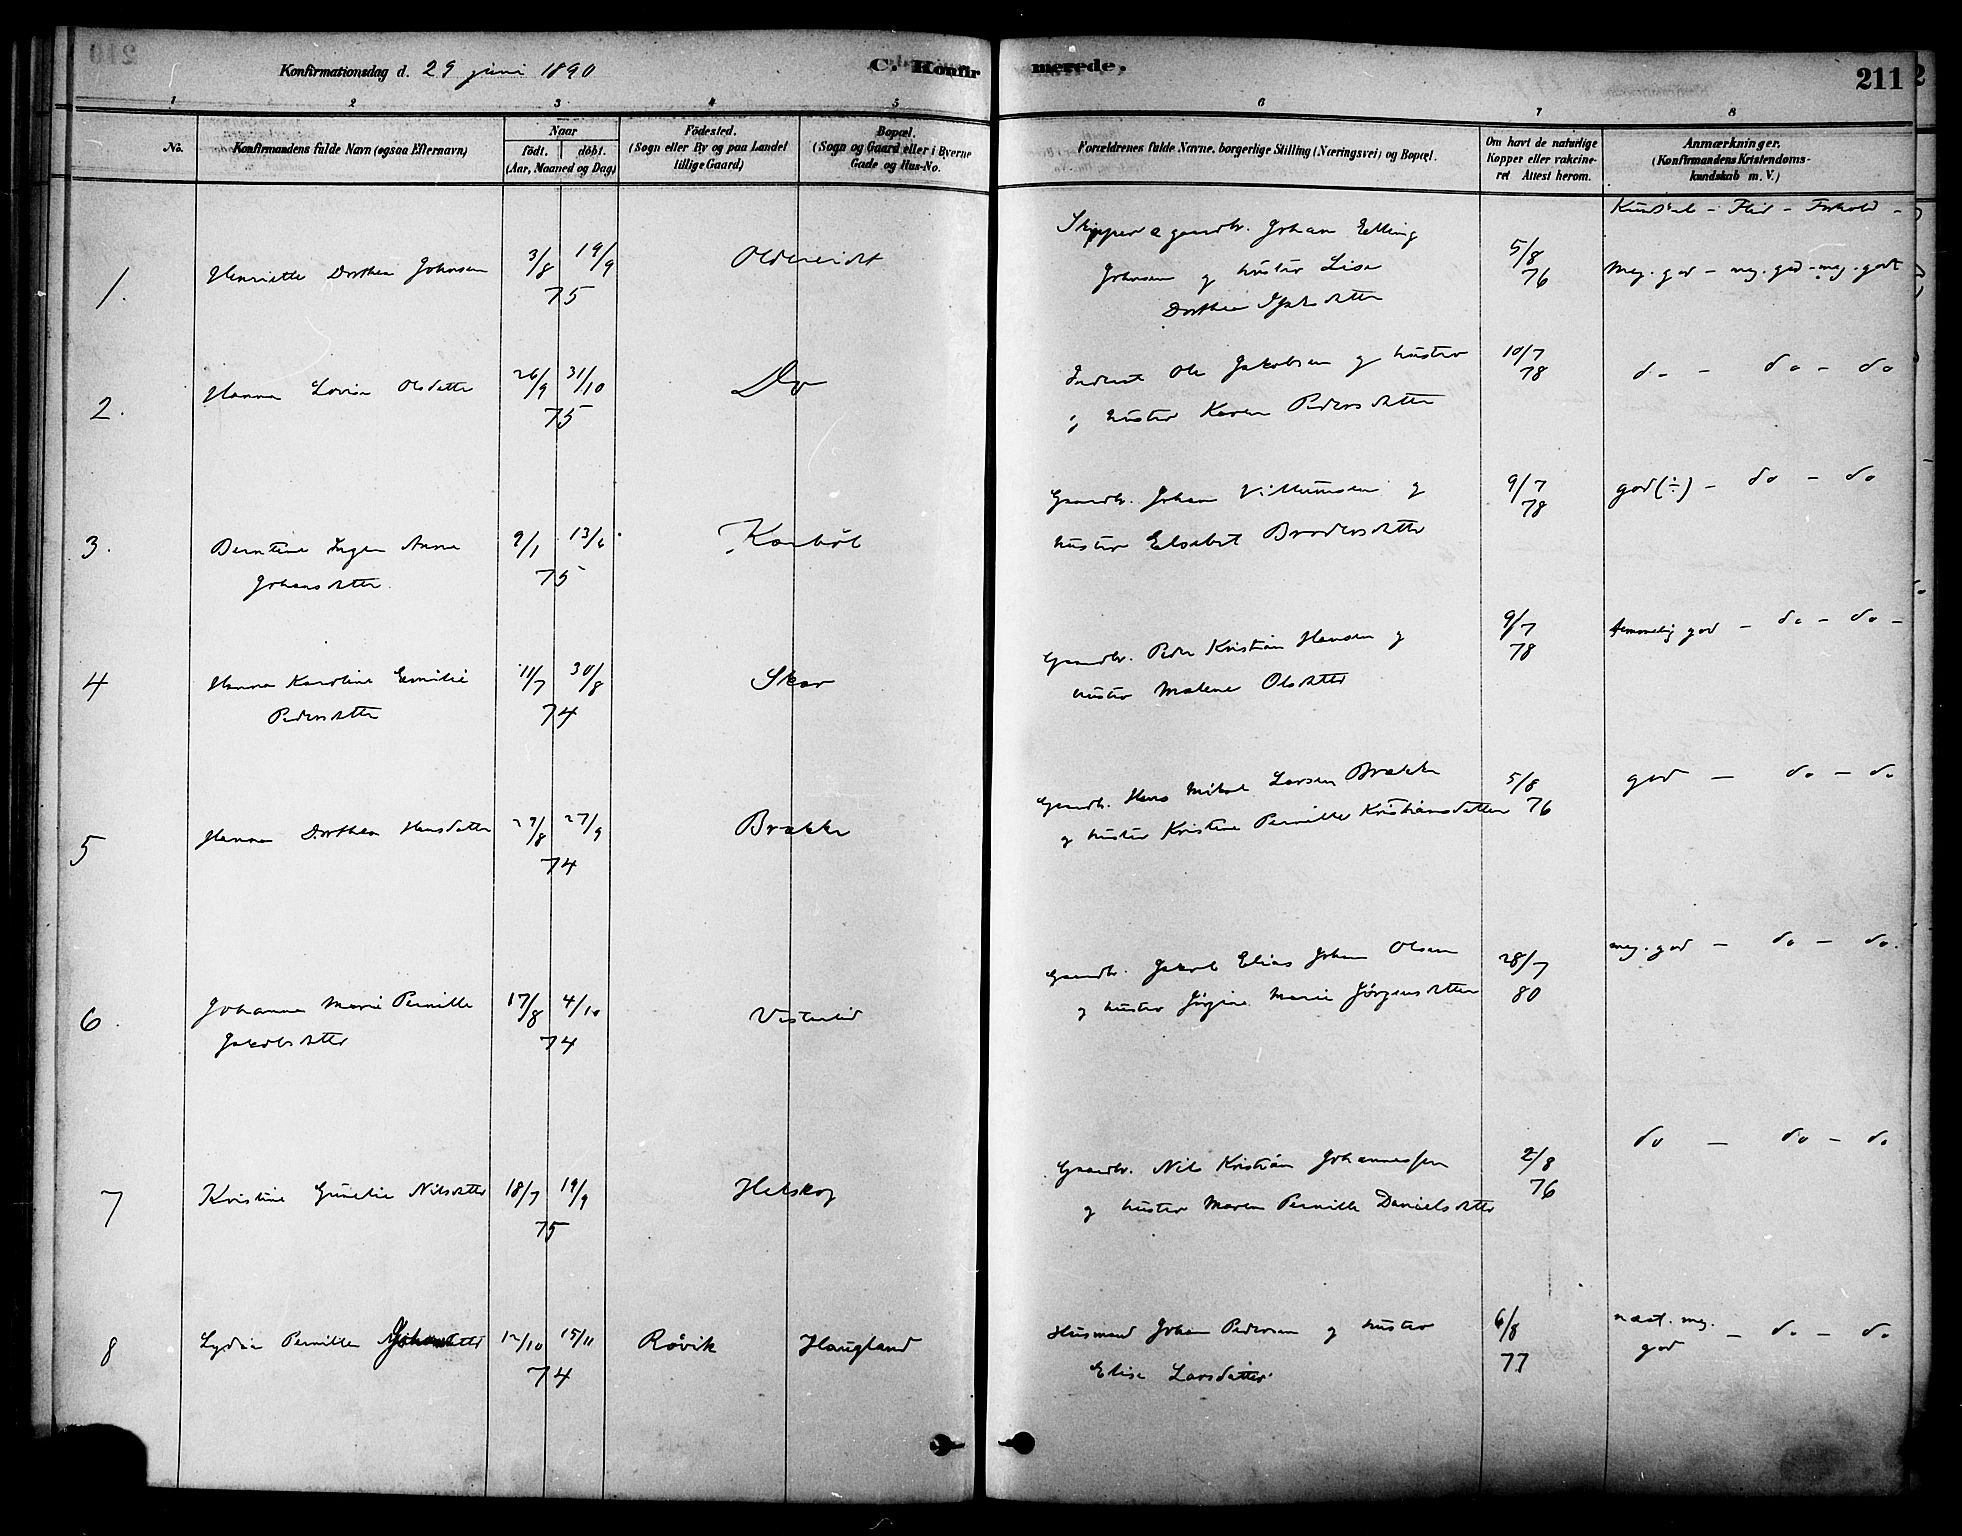 Konfirmationsdag d. 29 juni 1890
C. Konfirmerede.
211
1 2 3 4 5 6 7 8
No.
Konfirmandens fulde Navn (ogsaa Efternavn)
Naar
födt. döbt.
(Aar, Maaned og Dag)
Födested.
(Sogn eller By og paa Landet
tillige Gaard)
Bopæl.
(Sogn og Gaard eller i Byerne
Gade og Hus-No.
Forældrenes fulde Navne, borgerlige Stilling (Næringsvei) og Bopæl.
Om havt de naturlige
Kopper eller vakcine-
ret Attest herom.
Anmærkninger.
(Konfirmandens Kristendoms-
kundskab m. V.)
Kundsk. - Flid - Forhold -
1. Henriette Dorthea Johnsen 3/8 19/9 75 Oldereidet
Skipper & gaardbr. Johan Elling
Johnsen og hustru Lise
Dorthea
5/8 76
Meg. god - meg. god - meg. godt
2. Hanna Lovise Olsdatter 26/9 31/10 75 Do
Inderst Ole Jakobsen og hustru
og hustru Karen Pedersdatter
10/7 78
do - do - do
3. Berntine Inger Anna
Johansdatter
9/1 13/6 75
Gaardbr. Johan Villumsen og
hustru Elsebet Brodersdatter
9/7 78
god (÷) - do - do
4 Hanna Karoline Emilie
Pedersdatter
11/7 30/8 74 Skar
Gaardbr. Peder Kristian Hansen og
hustru Malene Olsdatter
9/7 78
temmelig god - do - do -
5 Hanna Dorthea Hansdatter 29/8 27/9 74 Brække
Gaardb. Hans Mikal Larsen Brække
og hustru Kristine Pernille Kristiansdatter
5/8 76
god - do - do
6. Johanna Marie Pernille
Jakobsdatter
17/8 4/10 74
Gaardbr. Jakob Elias Johan Olsen
og hustru Jörgine Marie Jörgensdatter
28/7 80
meg. god - do - do.
7 Kristine Nilsdatter 18/7 19/9 75 Helskog
Gaardbr. Nils Kristian Johannessen
og hustru Maren Pernille Danielsdatter
2/8 76
do - do - do
8 Lydia Pernille Johansdatter 12/10 15/11 74 Røvik Haugland
Husmand Johan Pedersen og hustru
Elise Larsdatter
6/8 77
næst. meg.
god - do - do